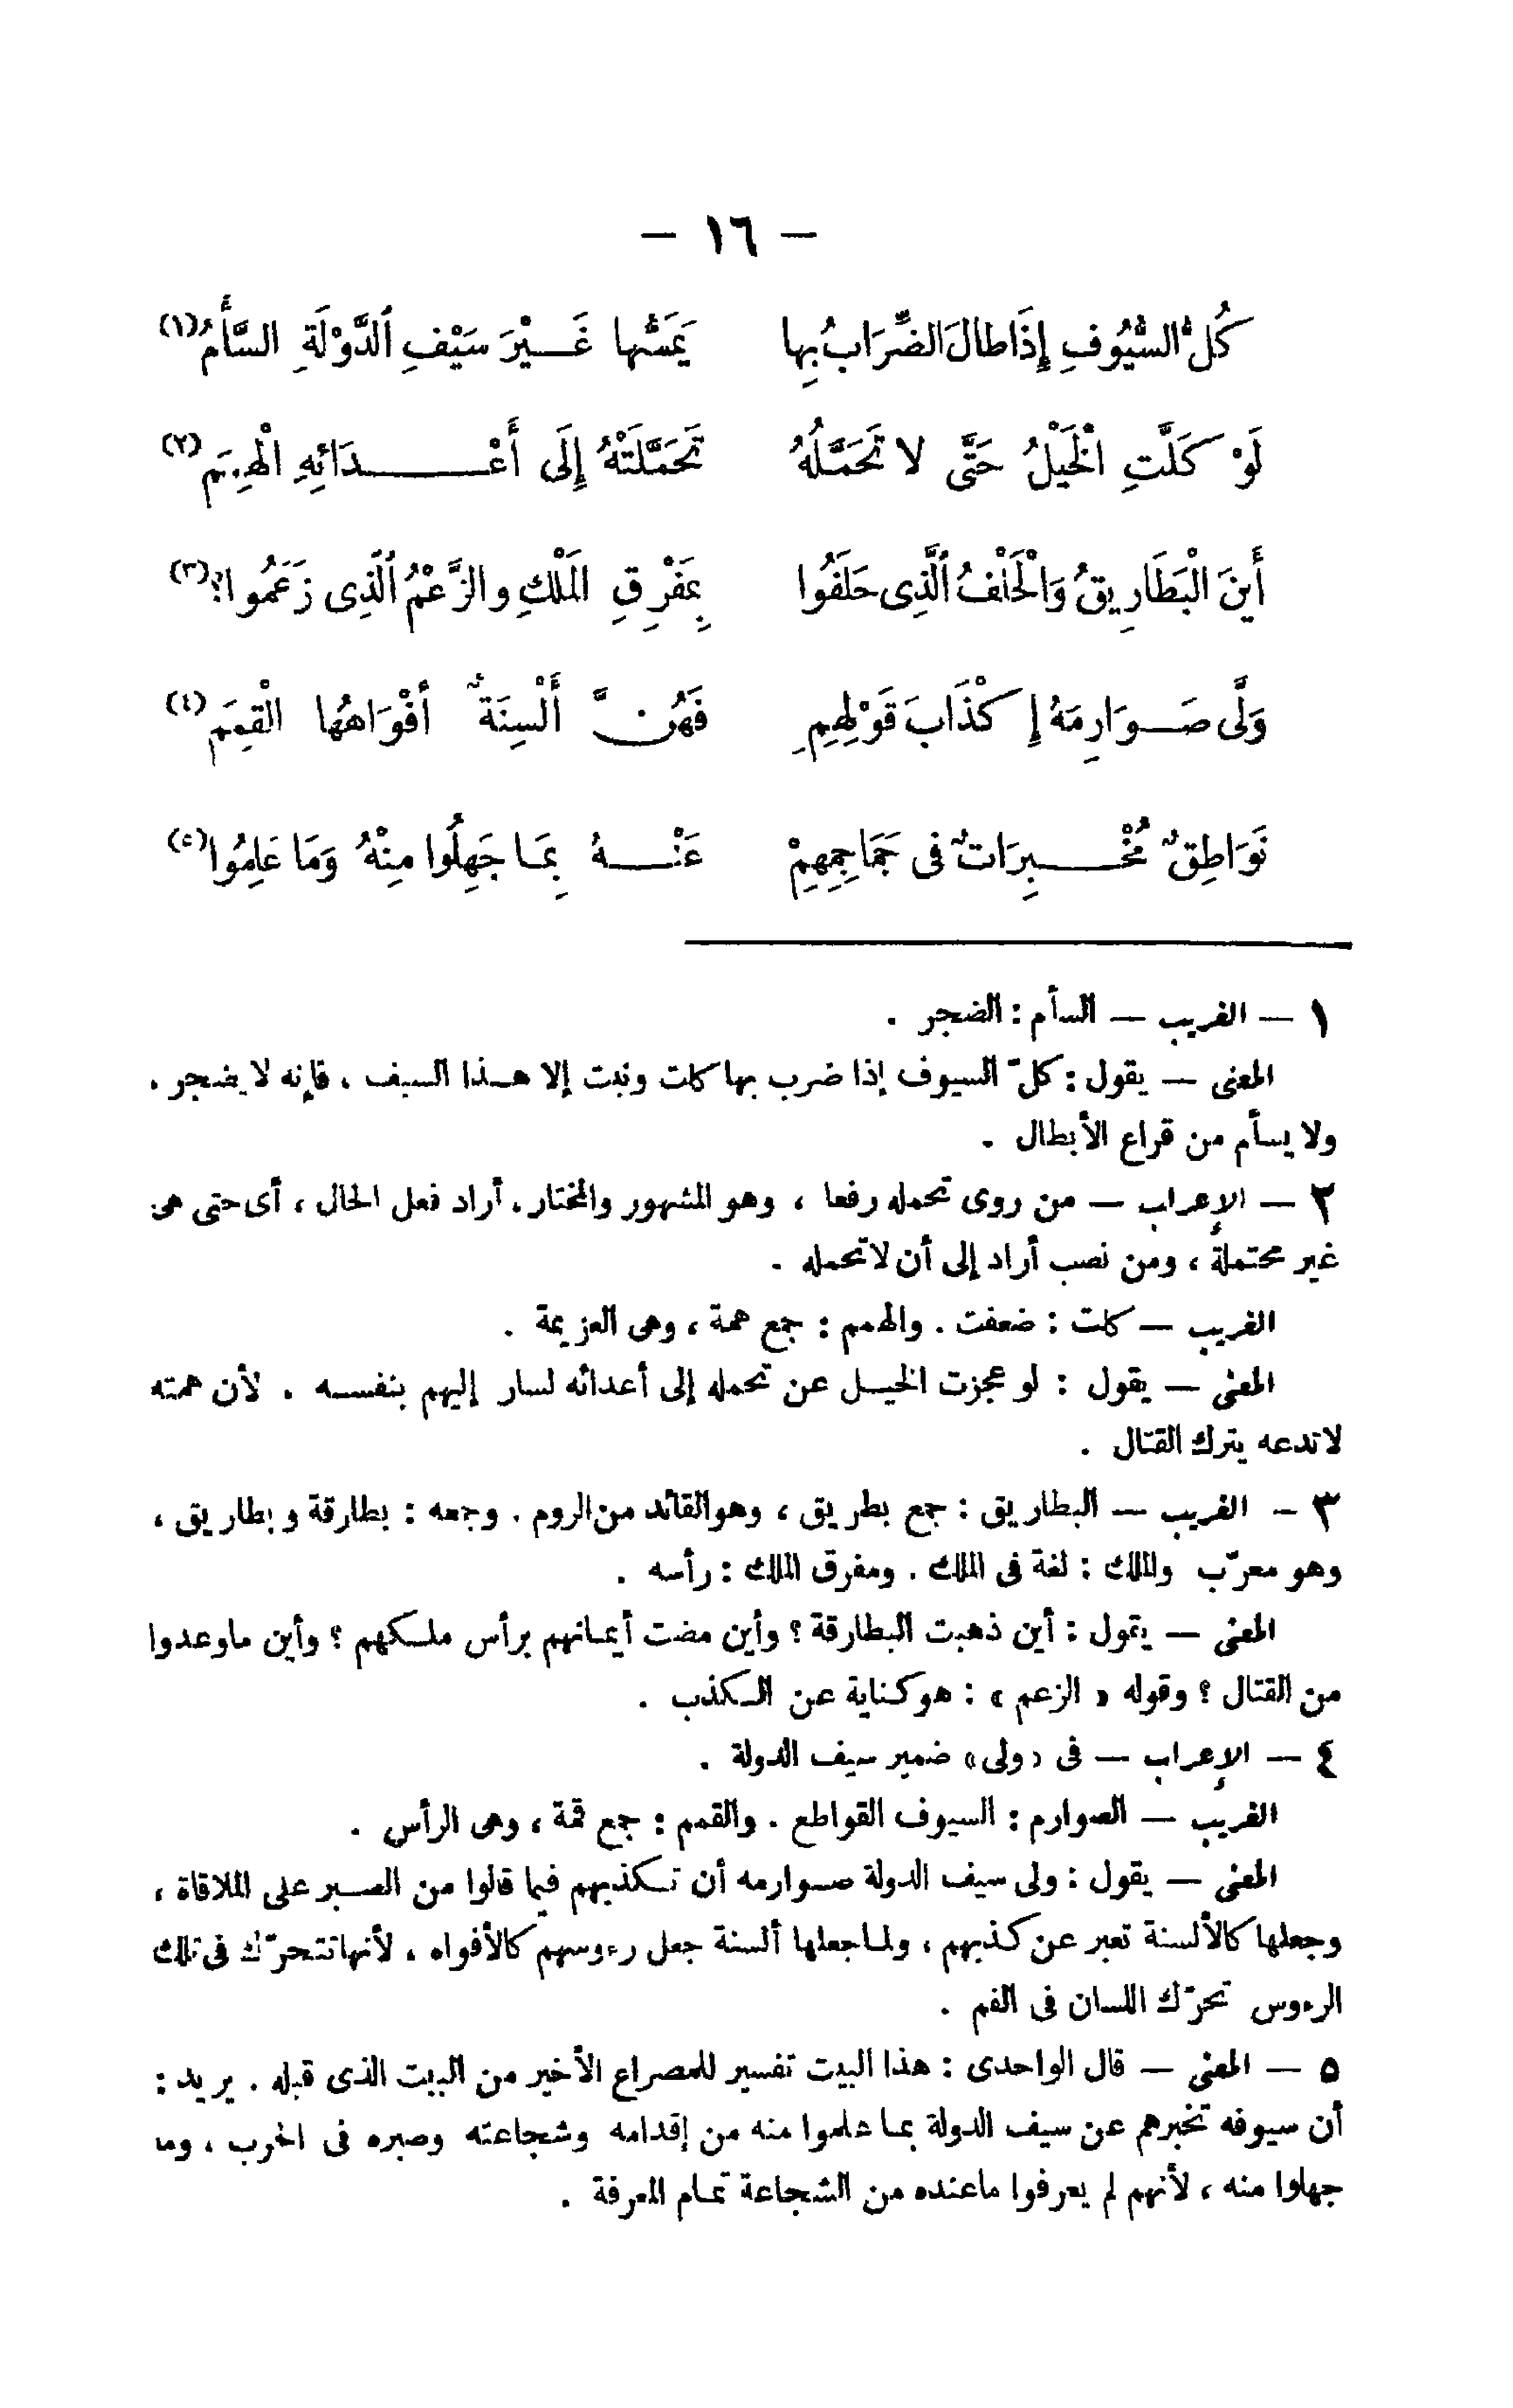 — ١٦ —
كُلُّ السُّيُوفِ إِذَا طالَ الضِّرَابُ بِها يَمَسُّها غَـيْرَ سَيْفِ ٱلدَّوْلَةِ السَّأَمُ (١)
لَوْ كَلَّتِ الْخَيْلُ حَتَّى لا تَحَمَّلُهُ تَحَمَّلَتْهُ إِلَى أَعْـدَائِهِ الْهِمَم (٢)
أَيْنَ الْبَطَارِيقُ وَالْحَلْفُ ٱلَّذِى حَلَفُوا بِمَفْرِقِ المَلْكِ والزَّعْمُ ٱلَّذِى زَعَمُوا؟ (٣)
وَلَّى صَـوَارِمَهُ إِكْذَابَ قَوْلِهِمِ فَهُنَّ أَلْسِنَةٌ أَفْوَاهُهَا الْقِمَم (٤)
نَوَاطِقٌ مُخْـبِرَاتٌ فى جَمَاجِمِهِمْ عَنْـهُ بِمَا جَهِلُوا مِنْهُ وَمَا عَلِمُوا (٥)
١ — الغريب — السأم : الضجر .
المعنى — يقول : كلّ السيوف إذا ضرب بها كلت ونبت إلا هـذا السيف ، فإنه لا يضجر ،
ولا يسأم من قراع الأبطال .
٢ — الإعراب — من روى تحمله رفعا ، وهو المشهور والمختار ، أراد فعل الحال ، أى حتى هى
غير محتملة ، ومن نصب أراد إلى أن لا تحمله .
الغريب — كلت : ضعفت . والهمم : جمع همة ، وهى العزيمة .
المعنى — يقول : لو عجزت الخيـل عن تحمله إلى أعدائه لسار إليهم بنفسـه . لأن همته
لا تدعه يترك القتال .
٣ - الغريب — البطاريق : جمع بطريق ، وهو القائد من الروم . وجمعه : بطارقة وبطاريق ،
وهو معرّب والملك : لغة فى الملك . ومفرق الملك : رأسه .
المعنى — يقول : أين ذهبت البطارقة ؟ وأين مضت أيمـانهم برأس ملـكهم ؟ وأين ما وعدوا
من القتال ؟ وقوله « الزعم » : هو كناية عن الـكذب .
٤ — الإعراب — فى «ولى» ضمير سيف الدولة .
الغريب — الصوارم : السيوف القواطع . والقمم : جمع قمة ، وهى الرأس .
المعنى — يقول : ولى سيف الدولة صـوارمه أن تـكذبهم فيما قالوا من الصـبر على الملاقاة ،
وجعلها كالألسنة تعبر عن كذبهم ، ولمـا جعلها ألسنة جعل رءوسهم كالأفواه ، لأنها تتحرّك فى تلك
الرءوس تحرّك اللسان فى الفم .
٥ — المعنى — قال الواحدى : هذا البيت تفسير للمصراع الأخير من البيت الذى قبله . يريد :
أن سيوفه تخبرهم عن سيف الدولة بمـا علموا منه من إقدامه وشجاعته وصبره فى الحرب ، وما
جهلوا منه ، لأنهم لم يعرفوا ما عنده من الشجاعة تمـام المعرفة .